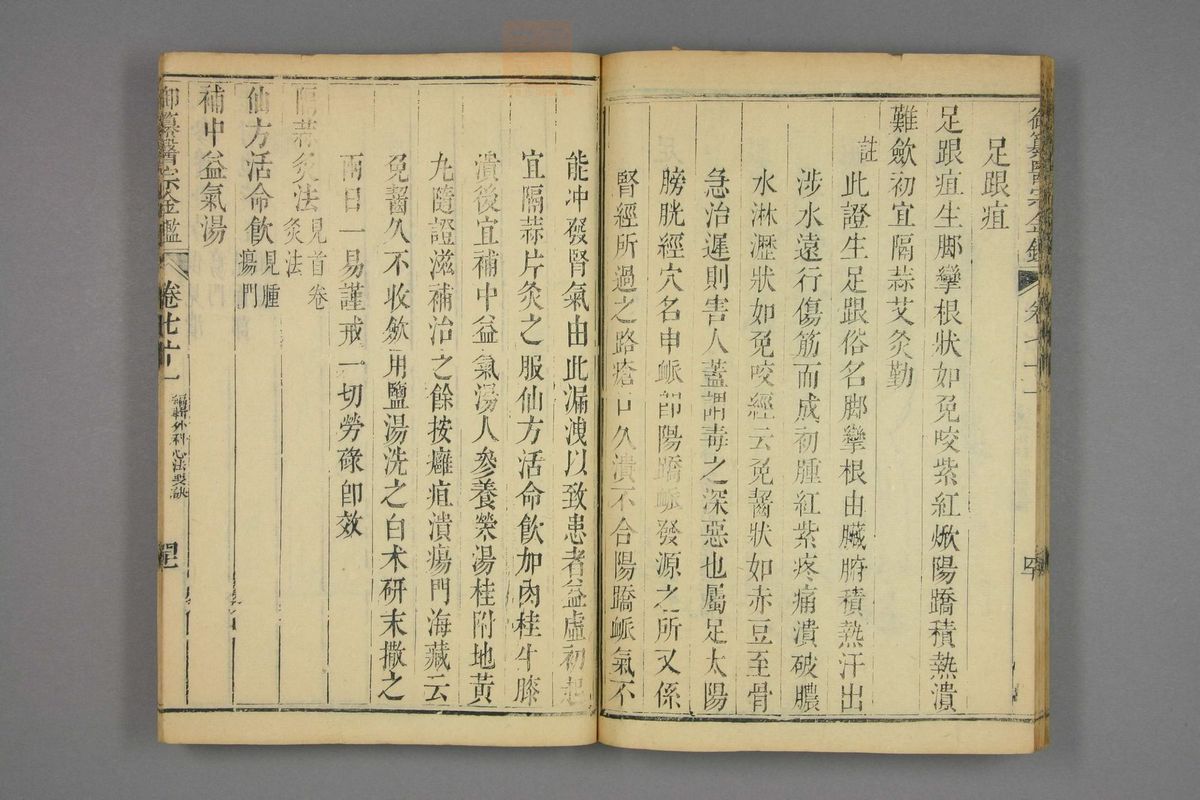 足跟疽
足跟疽生脚攣根狀如兔咬紫紅焮陽蹻積熱潰
難斂初宜隔蒜艾灸勤
註此證生足跟俗名脚攣根由臟腑積熱汗出
涉水遠行傷筋而成初腫紅紫疼痛潰破膿
水淋瀝狀如兔咬經云兔齧狀如赤豆至骨
急治遲則害人蓋謂毒之深惡也屬足太陽
膀胱經穴名申䘑卽陽蹻䘑發源之所又係
腎經所過之路瘡口久潰不合陽蹻䘑氣不
能冲發腎氣由此漏洩以致患者益虛初起
宜隔蒜片灸之服仙方活命飲加肉桂牛膝
潰後宜補中益氣湯人參養榮湯桂附地黃
九隨證滋補治之餘按癰疽潰瘍門海藏云
兔齧久不收斂用鹽湯洗之白术研末撒之
兩日一易謹戒一切勞碌卽效
隔蒜灸法見首卷灸法
仙方活命飲見腫瘍門
補中益氣湯
御纂醫宗金鑑 卷七十一 編輯外科心法要訣